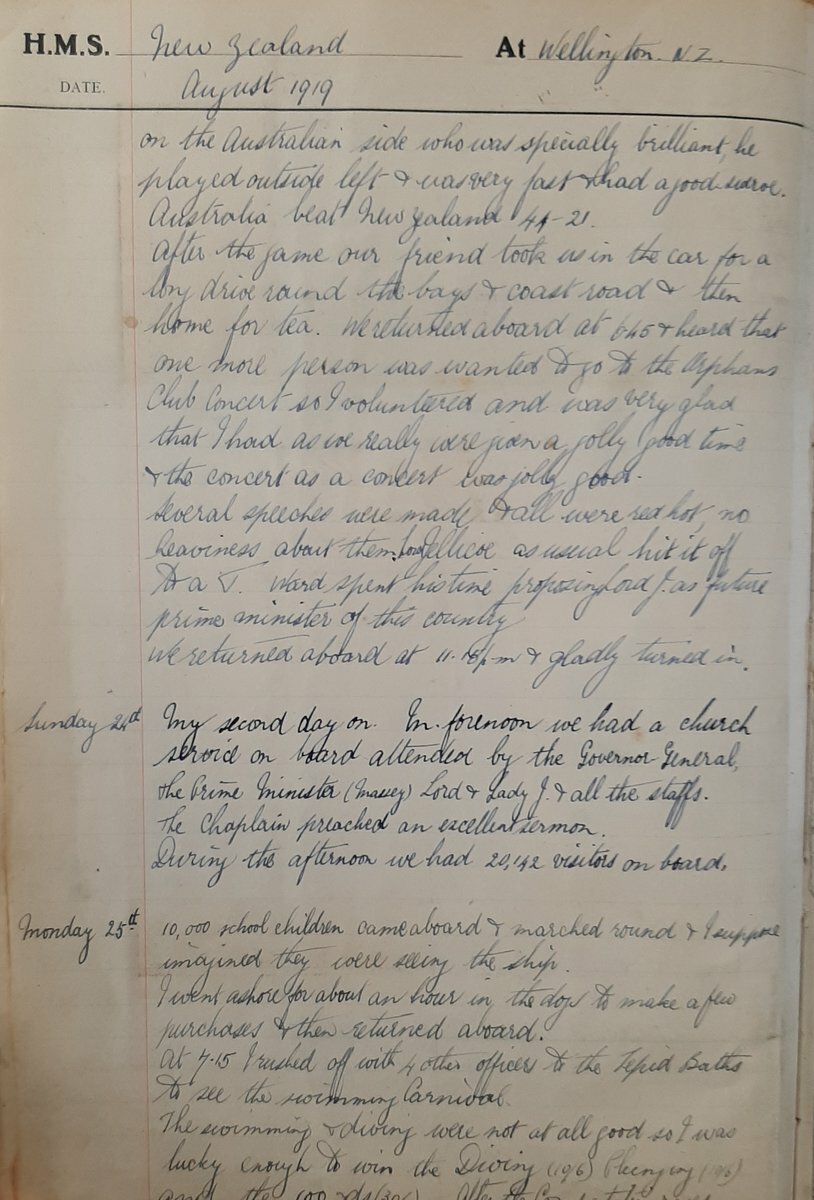 H.M.S. New Zealand At Wellington. N.Z.
DATE. August 1919
on the Australian side who was specially brilliant, he
played outside left & was very fast & had a good swerve.
Australia beat New Zealand 44-21.
After the game our friend took us in the car for a
long drive round the bays & coast road & then
home for tea. We returned aboard at 6.45 & heard that
one more person was wanted to go to the Orphans
Club Concert so I volunteered and was very glad
that I had as we really were given a jolly good time
& the concert as a concert was jolly good.
Several speeches were made & all were red hot, no
heaviness about them. Lord Jellicoe as usual hit it off
to a T. Ward spent his time proposing Lord J. as future
prime minister of this country
We returned aboard at 11. p.m & gladly turned in.
Sunday 24th My second day on. In forenoon we had a church
service on board attended by the Governor General,
the Prime Minister (Massey) Lord & Lady J. & all the staffs.
The Chaplain preached an excellent sermon.
During the afternoon we had 20,142 visitors on board.
Monday 25th 10,000 school children came aboard & marched round & I suppose
imagined they were seeing the ship.
I went ashore for about an hour in the dogs to make a few
purchases & then returned aboard.
At 7.15 I rushed off with 4 other officers to the Tepid Baths
to see the swimming Carnival.
The swimming & diving were not at all good so I was
lucky enough to win the Diving Plunging
and the 100 yds After the